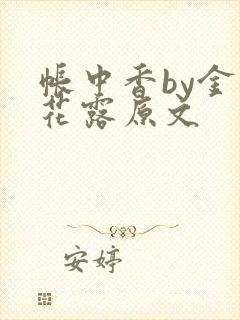 帐中香by金
花露原文
安婷